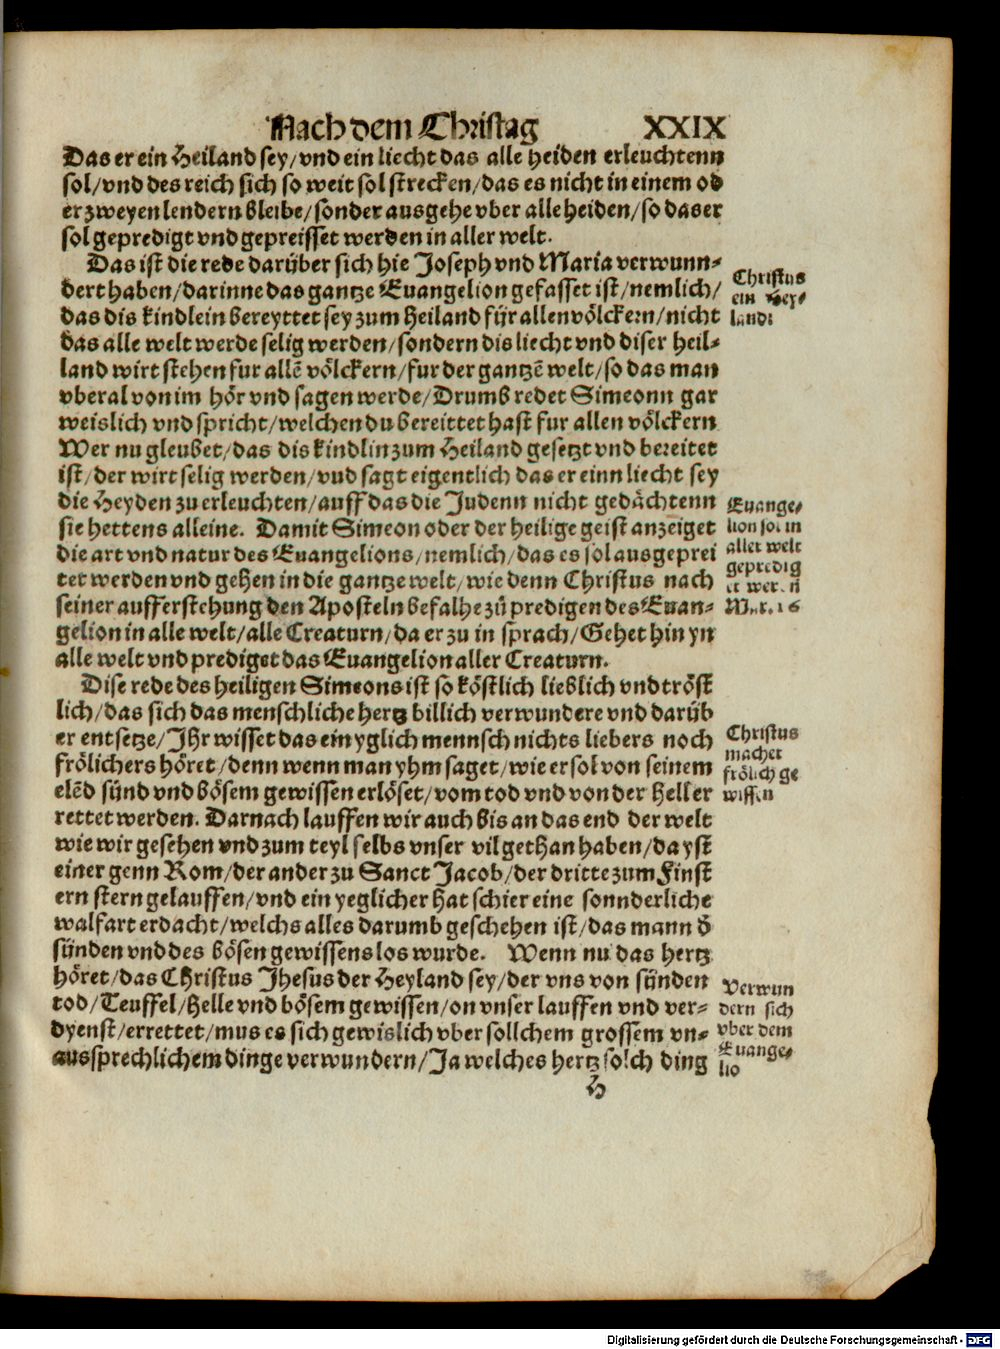 Nach dem Christag XXIX
Das er ein Heiland sey/vnd ein liecht das alle heiden erleuchtenn
sol/vnd des reich sich so weit sol strecken/das es nicht in einem od
er zweyen lendern bleibe/sonder ausgehe vber alle heiden/so das er
sol gepredigt vnd gepreisset werden in aller welt.
Das ist die rede darüber sich hie Joseph vnd Maria verwunn-
dert haben/darinne das gantze Euangelion gefasset ist/nemlich/
das dis kindlein bereyttet sey zum Heiland für allen völckern/nicht
das alle welt werde selig werden/sondern dis liecht vnd diser heil-
land wirt stehen fur allē völckern/fur der gantzē welt/so das man
vberal von im hör vnd sagen werde/Drumb redet Simeonn gar
weislich vnd spricht/welchen du bereittet hast fur allen völckern
Wer nu gleubet/das dis kindlin zum Heiland gesetzt vnd bereitet
ist/der wirt selig werden/vud sagt eigentlich das er einn liecht sey
die Heyden zu erleuchten/auff das die Judenn nicht gedächtenn
sie hettens alleine. Damit Simeon oder der heilige geist anzeiget
die art vnd natur des Euangelions/nemlich/das es sol ausgeprei
tet werden vnd gehen in die gantze welt/wie denn Christus nach
seiner aufferstehung den Aposteln befalhe zů predigen des Euan-
gelion in alle welt/alle Creaturn/da er zu in sprach/Gehet hin yn
alle welt vnd prediget das Euangelion aller Creaturn.
Dise rede des heiligen Simeons ist so köstlich lieblich vnd tröst
lich/das sich das menschliche hertz billich verwundere vnd darüb
er entsetze/Jhr wisset das ein yglich mennsch nichts liebers noch
frölichers höret/denn wenn man yhm saget/wie er sol von seinem
elēd sünd vnd bösem gewissen erlöset/vom tod vnd von der hell er
rettet werden. Darnach lauffen wir auch bis an das end der welt
wie wir gesehen vnd zum teyl selbs vnser vil gethan haben/da yst
einer genn Rom/der ander zu Sanct Jacob/der dritte zum Finst
ern stern gelauffen/vnd ein yeglicher hat schier eine sonnderliche
walfart erdacht/welchs alles darumb geschehen ist/das mann d̄
sünden vnd des bösen gewissens los wurde. Wenn nu das hertz
höret/das Christus Jhesus der Heyland sey/der vns von sünden
tod/Teuffel/Helle vnd bösem gewissen/on vnser lauffen vnd ver-
dyenst/errettet/mus es sich gewislich vber sollchem grossem vn-
aussprechlichem dinge verwundern/Ja welches hertz solch ding
H
Christus
ein Hey-
landt
Euange-
lion sol in
aller welt
gepredig
et werdn̄
Mar. 16
Christus
machet
frölich ge
wissen
Verwun
dern sich
vber dem
Euange-
lio
Digitalisierung gefördert durch die Deutsche Forschungsgemeinschaft - DFG